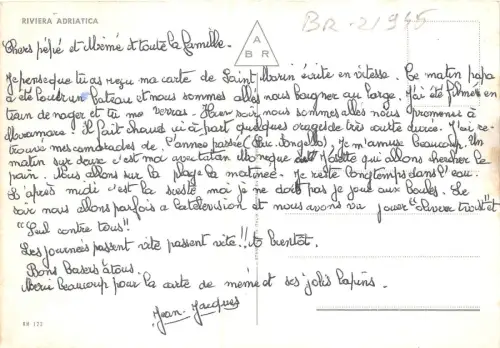 RIVIERA ADRIATICA
BR-21945
A
B R
Chers pépé et Mémé et toute la famille.
Je pense que tu as reçu ma carte de Saint Marin écrite en vitesse. Ce matin papa
a été louer un bateau et nous sommes allés nous baigner au large. J'ai été filmés en
train de nager et tu me verras. Hier soir nous sommes allés nous promenés à
Il fait chaud à part quelques orages de très courte durée. J'ai re-
trouvé mes camarades de l'année passée (Luc. Angello). Je m'amuse beaucoup. Un
matin sur deux c'est moi avec tatan Monique et qui allons chercher le
pain. Nous allons sur la plage la matinée. Je reste longtemps dans l'eau.
L'après midi c'est la sieste moi je ne dort pas je joue aux boules. Le
soir nous allons parfois a la télévision et nous avons vu jouer et
"Seul contre tous"!!
Les journées passent vite passent vite!!! to bientot.
Bons Basers à tous.
Merci beaucoup pour la carte de mémé et ses jolis lapins.
Jean-Jacques
BR 122